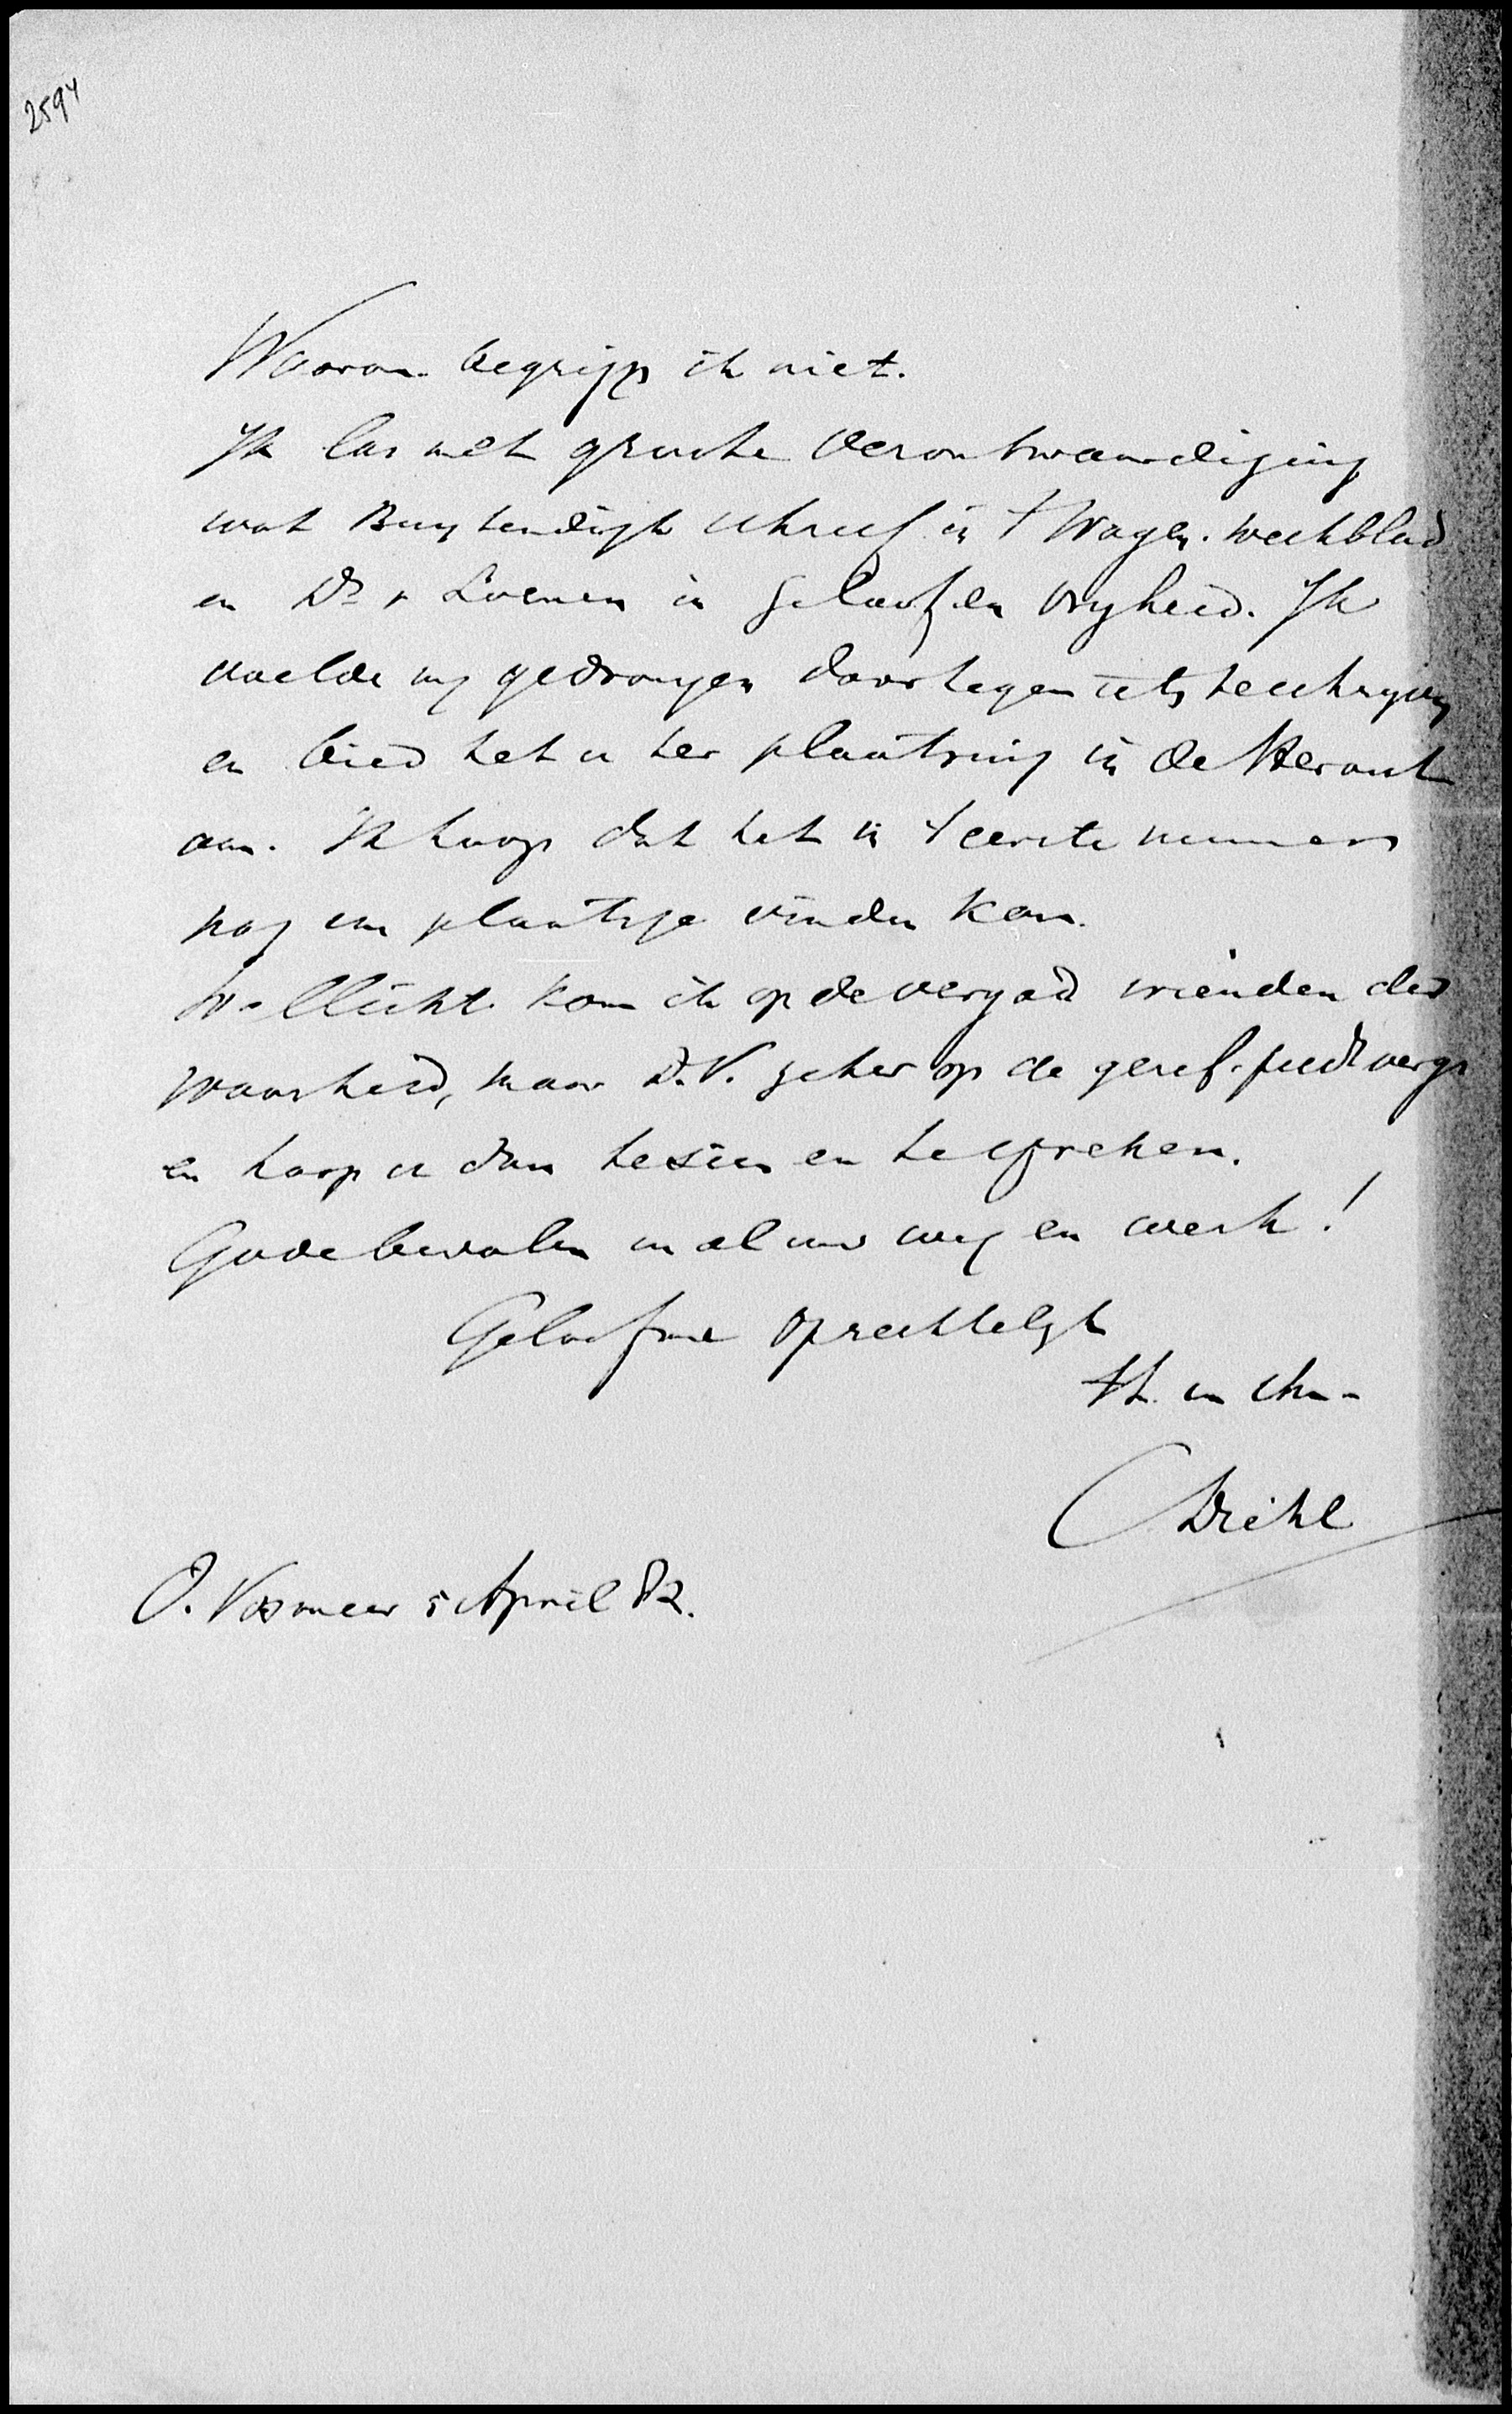 2594
Waarom begrijp ik niet.
Ik las met groote verontwaardiging
wat Buytendijk schreef in 't Wagen. weekblad
en Dr v Loenen in Geloof en Vrijheid. Ik
voelde mij gedrongen daartegen iets te schrijven
en bied het u ter plaatsing in de Heraut
aan. Ik hoop dat het in 't eerste nummer
nog een plaatsje vinden kan.
Wellicht kom ik op de vergad vrienden der
waarheid, maar D.V. zeker op de geref. pred verg
en hoop u dan te zien en te spreken.
Gode bevolen in al uw weg en werk!
Geloof me oprechtelijk
tt. in Chr.
C Diehl
O. Vosmeer 5 April 82.